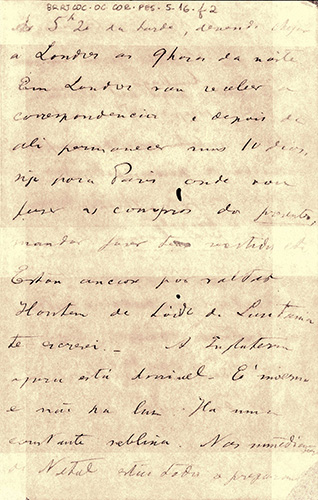 BR RJCOC-OC-COR-PES-5-16.f-2
As 5h 20 da tarde, devendo chegar
a Londres as 9 horas da noite
Em Londres vou receber a
correspondencia e depois de
ali permanecer mais 10 dias,
sigo para Paris onde vou
fazer as compras do
mandar fazer vestidos
Estou ancioso por
de de Lusitania
te escrevi. _ A Inglaterra
agora está É inverno
e não ha luz. Ha uma
constante neblina. Nas
de Natal todo o